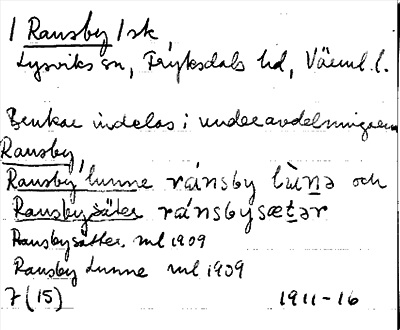 / Ransby / sk
Lysviks sn, Fryksdals hd, Värml. l.
Brukar indelas i underavdelningarna
Ransby,
Ransby lunne ránsby lùn̲ə och
Ransbysäter ránsbysæt̲ər
Ransbysätter ml 1909
Ransby Lunne ml 1909
7 (15) 1911-16